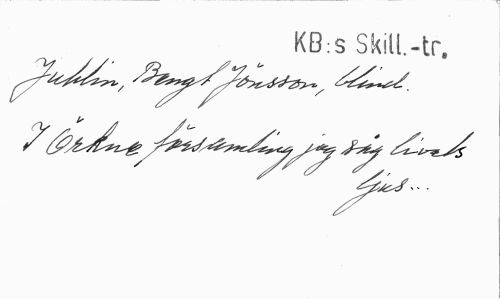 KB:s Skill.-tr.
Juhlin, Bengt Jönsson, blind.
I Örkne församling jag såg livets
ljus...